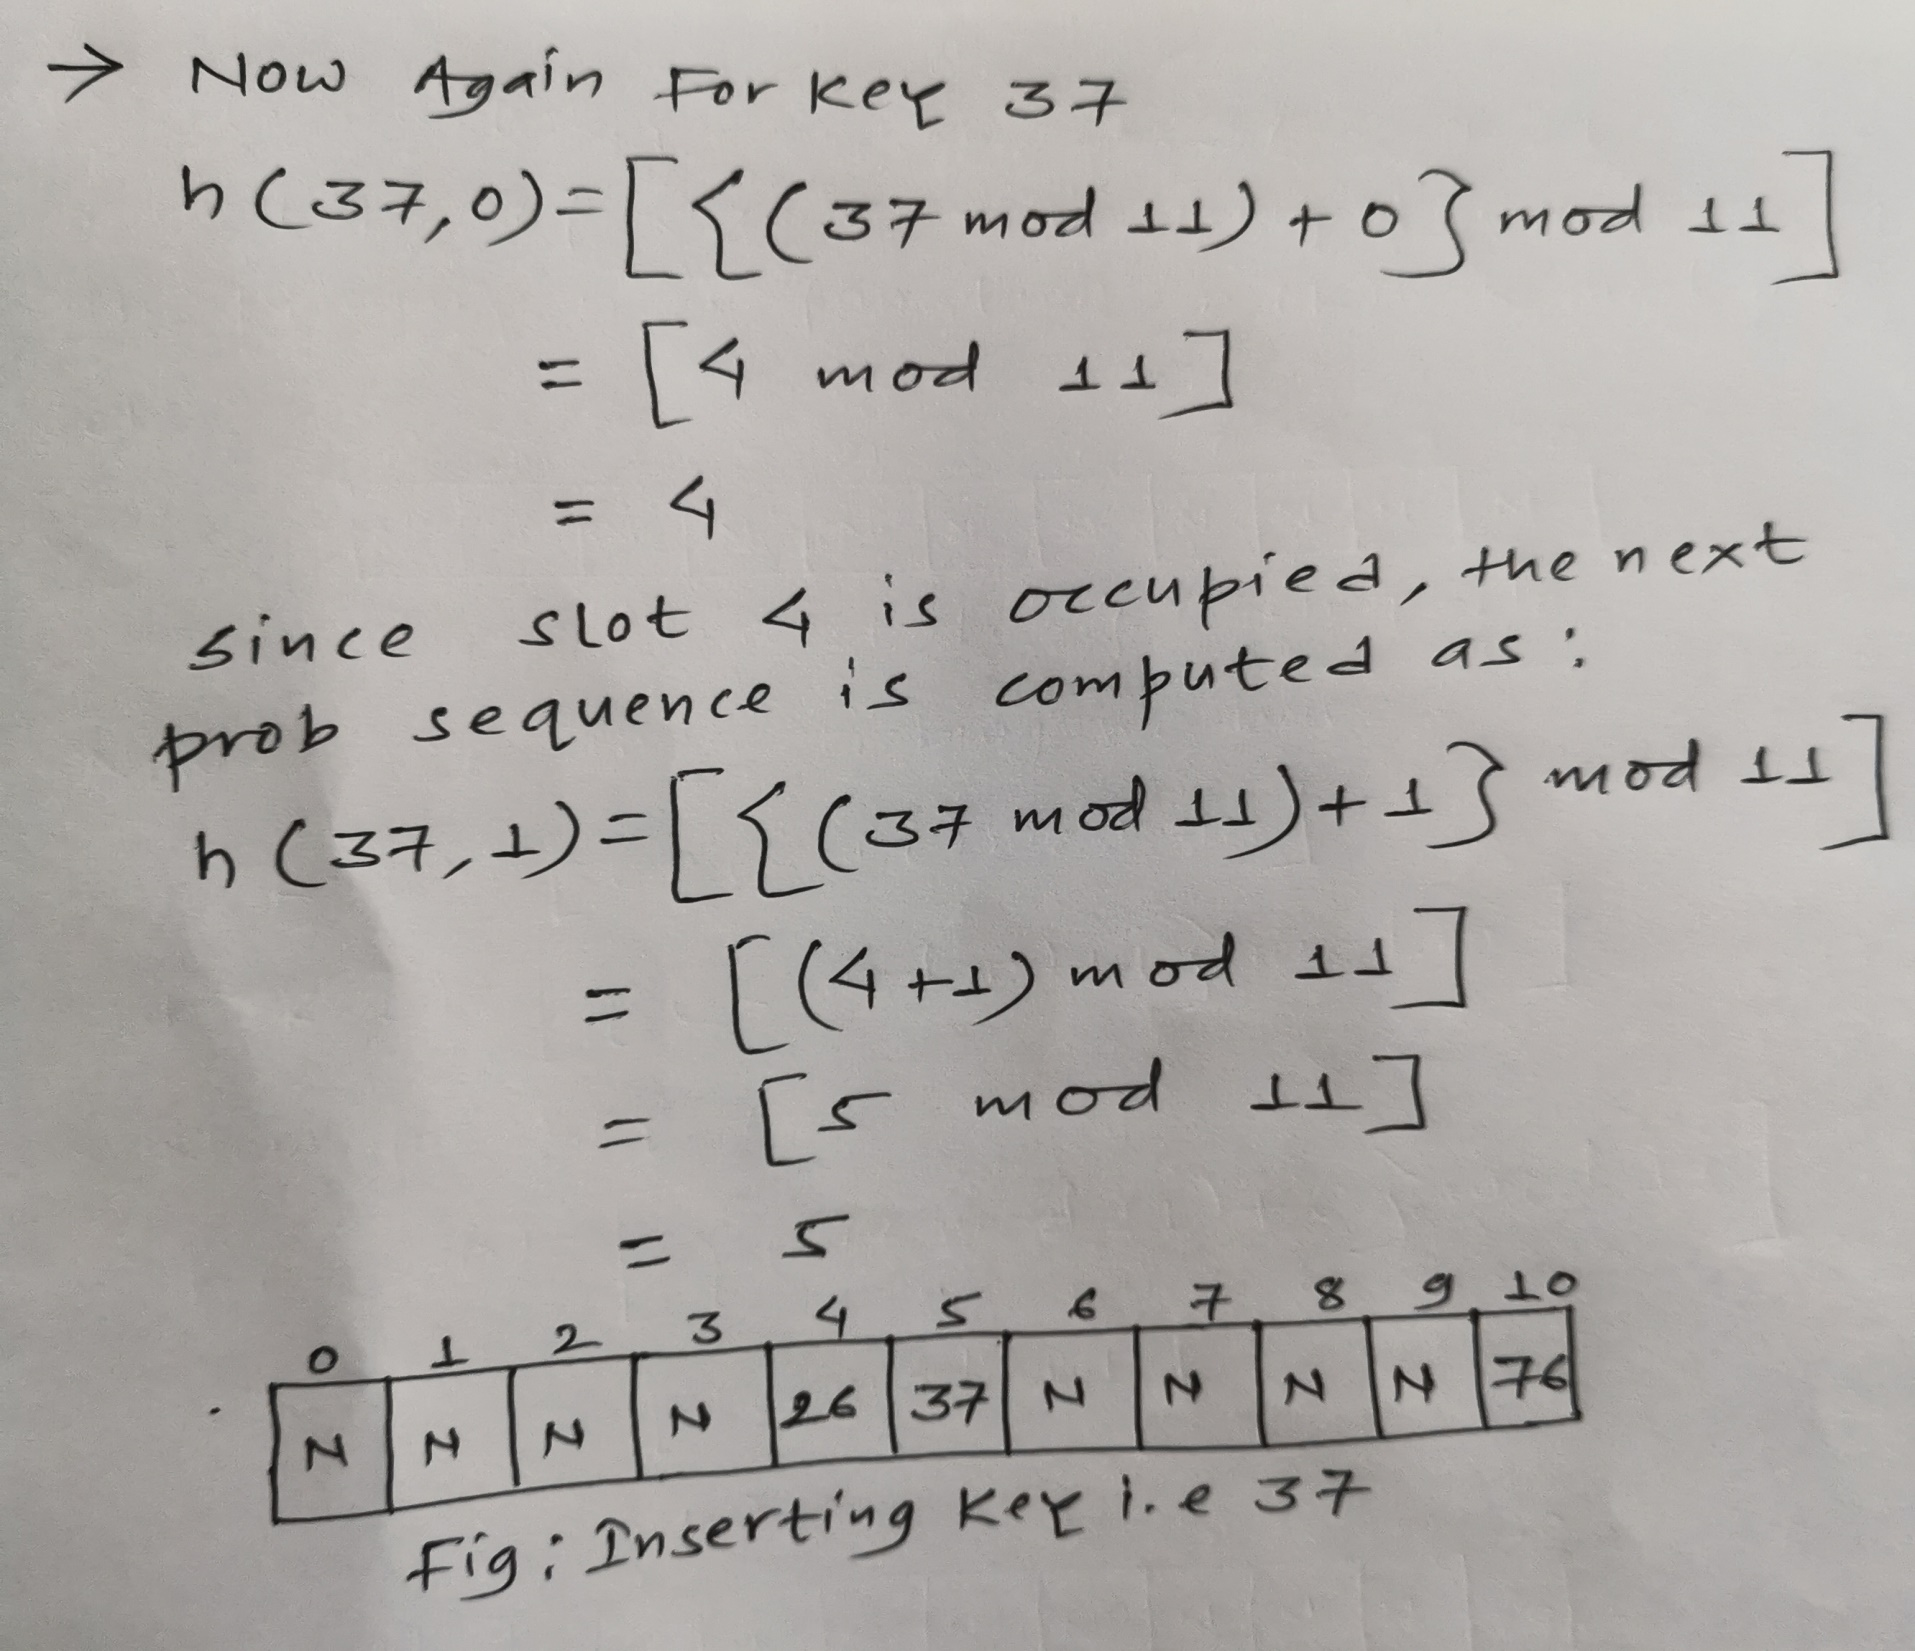 → Now Again For Key 37
h(37,0)=[{(37 mod 11)+0} mod 11]
= [4 mod 11]
= 4
since slot 4 is occupied, the next
prob sequence is computed as:
h(37,1)=[{(37 mod 11)+1} mod 11]
= [(4+1) mod 11]
= [5 mod 11]
= 5
0 1 2 3 4 5 6 7 8 9 10
N N N N 26 37 N N N N 76
Fig: Inserting Key i.e 37